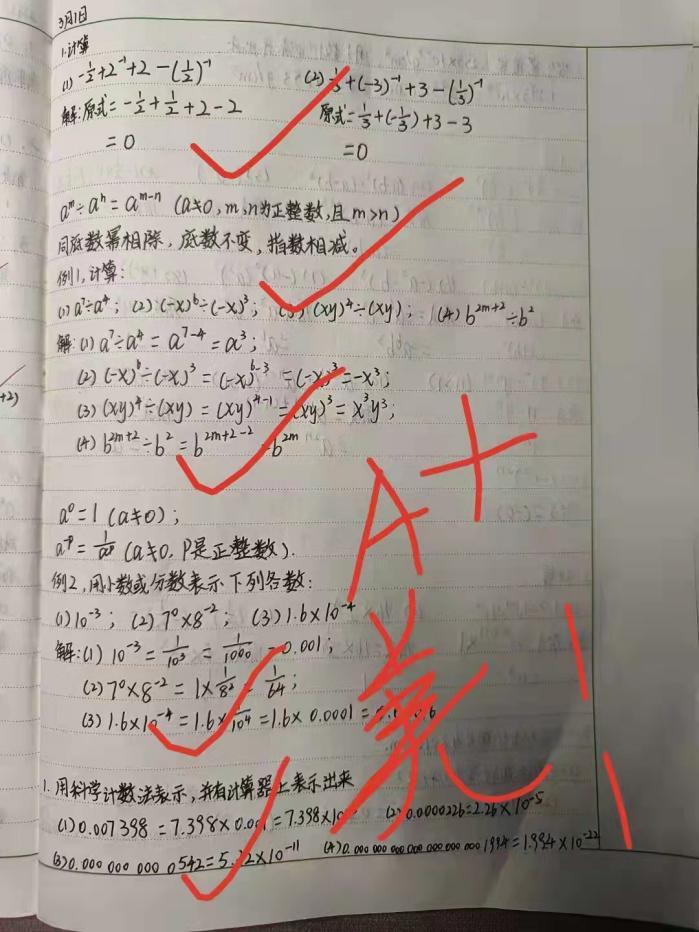 3月1日
1.计算
(1) -½+2⁻¹+2-(½)⁻¹ (2) ⅓+(-3)⁻¹+3-(⅓)⁻¹
解:原式=-½+½+2-2 原式=⅓+(-⅓)+3-3
=0 =0
aᵐ÷aⁿ=aᵐ⁻ⁿ (a≠0,m,n为正整数,且m>n)
同底数幂相除,底数不变,指数相减。
例1,计算:
(1) a⁷÷a⁴; (2) (-x)⁶÷(-x)³; (3) (xy)⁴÷(xy); (4) b²ᵐ⁺²÷b²
解:(1) a⁷÷a⁴=a⁷⁻⁴=a³;
(2) (-x)⁶÷(-x)³=(-x)⁶⁻³=(-x)³=-x³;
(3) (xy)⁴÷(xy)=(xy)⁴⁻¹=(xy)³=x³y³;
(4) b²ᵐ⁺²÷b²=b²ᵐ⁺²⁻²=b²ᵐ
a⁰=1 (a≠0);
a⁻ᵖ=1/aᵖ (a≠0,P是正整数).
例2,用小数或分数表示下列各数:
(1) 10⁻³; (2) 7⁰×8⁻²; (3) 1.6×10⁻⁴
解:(1) 10⁻³=1/10³=1/1000=0.001;
(2) 7⁰×8⁻²=1×1/8²=1/64;
(3) 1.6×10⁻⁴=1.6×1/10⁴=1.6×0.0001=
1.用科学计数法表示,并有计算器上表示出来
(1) 0.007398=7.398×0.001=7.398×10 (2) 0.0000226=2.26×10⁻⁵
(3) 0.000 000 000 0542=5.42×10⁻¹¹ (4) 0.000 000 000 000 000 000 000 1994=1.994×10⁻²²
A+
美!